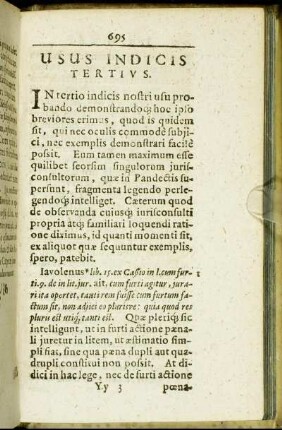 695
USUS INDICIS
TERTIVS.
IN tertio indicis nostri usu pro-
bando demonstrandoq; hoc ipso
breviores erimus, quod is quidem
sit, qui nec oculis commodè subji-
ci, nec exemplis demonstrari facilè
possit. Eum tamen maximum esse
quilibet seorsim singulorum juris-
consultorum, quæ in Pandectis su-
persunt, fragmenta legendo perle-
gendoq; intelliget. Cæterum quod
de observanda cuiusq; jurisconsulti
propria atq; familiari loquendi ratio-
ne diximus, id quanti momenti sit,
ex aliquot quæ sequuntur exemplis,
spero, patebit.
Iavolenus lib. 15. ex Cassio in l. cum fur-
ti. 9. de in lit. jur. ait. cum furti agitur, jura-
ri ita oportet, tanti rem fuisse cum furtum fa-
ctum sit, non adjici eo plurisve: quia quod res
pluris est utiq; tanti est. Quæ pleriq; sic
intelligunt, ut in furti actione pœna-
li juretur in litem, ut æstimatio sim-
pli fiat, sine qua pœna dupli aut qua-
drupli constitui non possit. At di-
dici in hac lege, nec de furti actione
Yy 3 pœna-